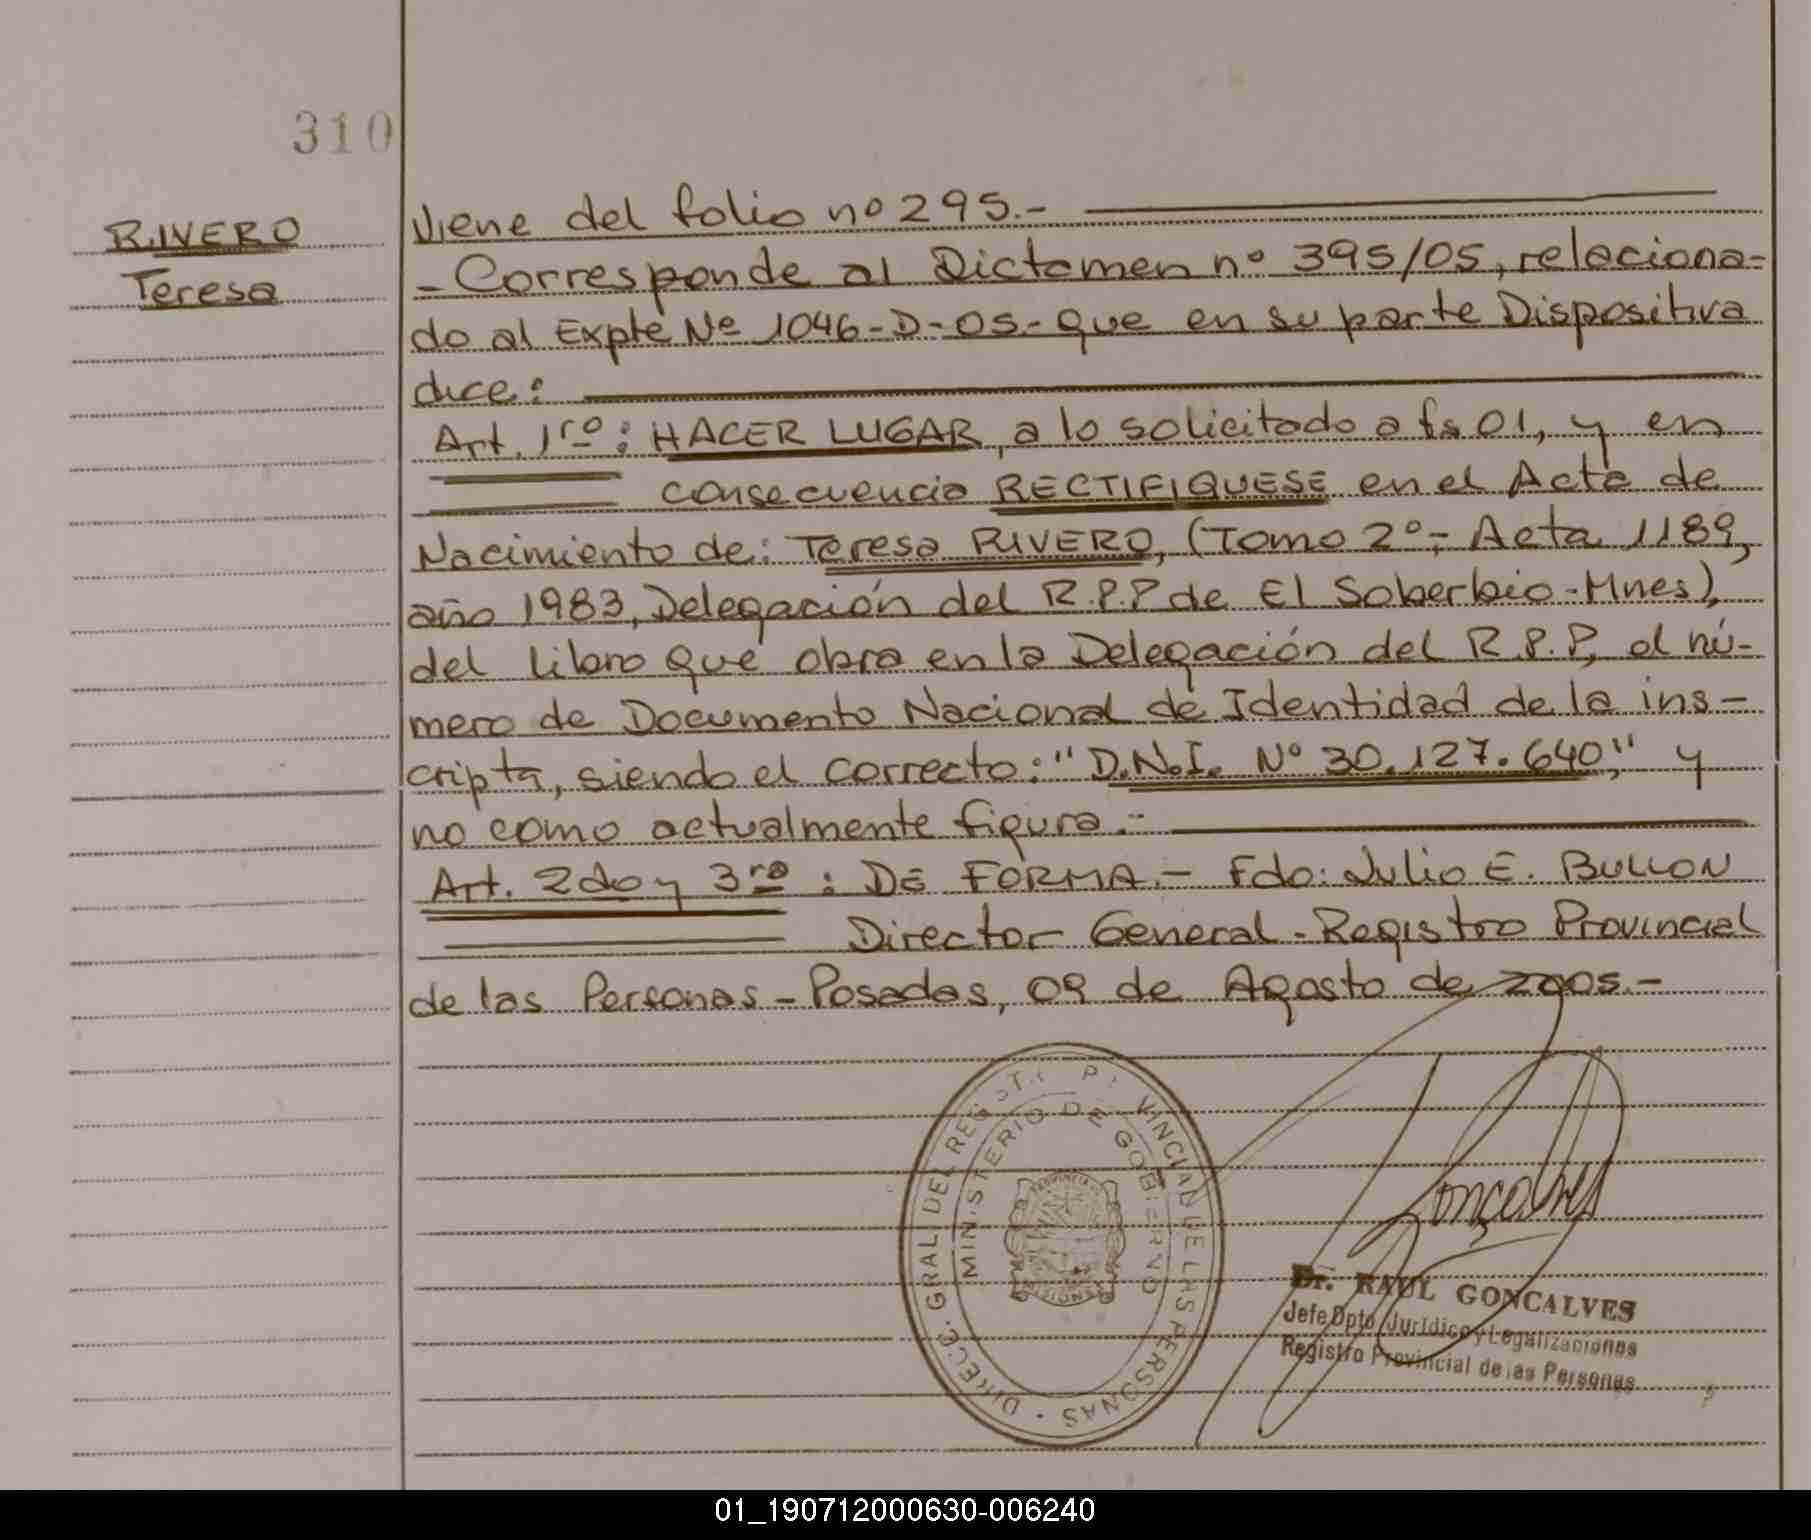 310
RIVERO
Teresa
Viene del folio nº 295.-
- Corresponde al Dictamen nº 395/05, relaciona-
do al Expte Nº 1046-D-05.- que en su parte Dispositiva
dice:
Art. 1ro: HACER LUGAR, a lo solicitado a fs 01, y en
consecuencia RECTIFIQUESE en el Acta de
Nacimiento de: Teresa RIVERO, (Tomo 2º - Acta 1189,
año 1983, Delegación del R.P.P de El Soberbio - Mnes),
del libro que obra en la Delegación del R.P.P, el nú-
mero de Documento Nacional de Identidad de la ins-
cripta, siendo el correcto: "D.N.I. Nº 30.127.640", y
no como actualmente figura.-
Art. 2do y 3ro : DE FORMA.- Fdo: Julio E. BULLON
Director General - Registro Provincial
de las Personas - Posadas, 09 de Agosto de 2005.-
DIRECC. GRAL. DEL REGIST. P. VINCIAL DE LAS PERSONAS
MINISTERIO DE GOBIERNO
PROVINCIA
MISIONES
Goncalves
Dr. RAUL GONCALVES
Jefe Dpto. Jurídico y Legalizaciones
Registro Provincial de las Personas
01_190712000630-006240